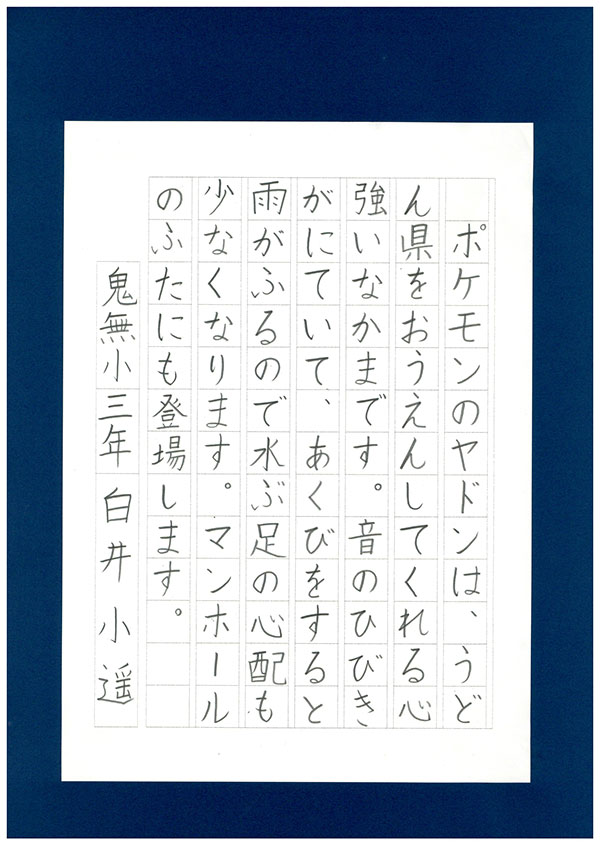 ポケモンのヤドンは、うど
ん県をおうえんしてくれる心
強いなかまです。音のひびき
がにていて、あくびをすると
雨がふるので水ぶ足の心配も
少なくなります。マンホール
のふたにも登場します。
鬼無小三年 白井小遥